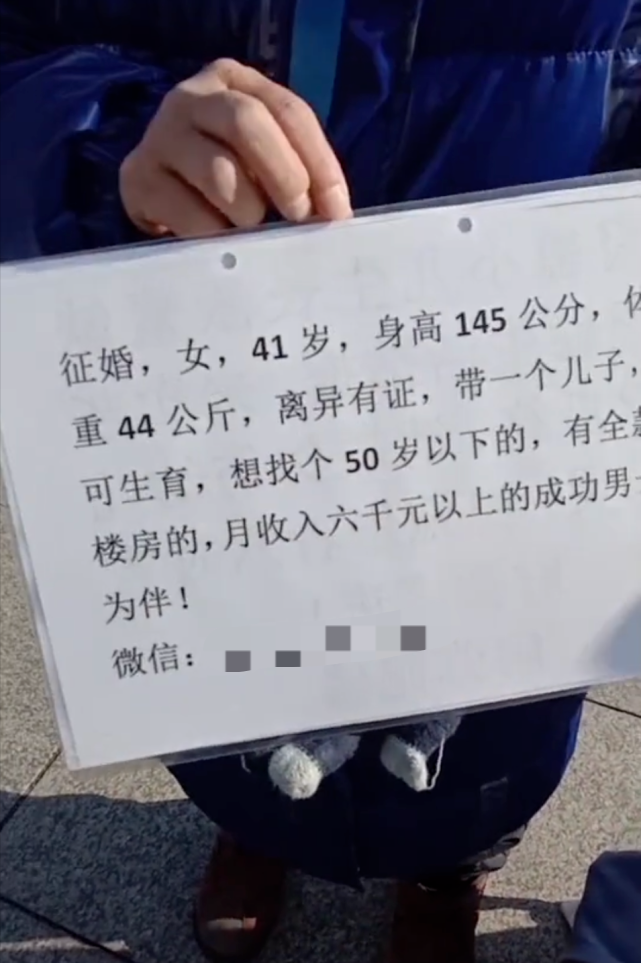 征婚，女，41 岁，身高 145 公分，体
重 44 公斤，离异有证，带一个儿子，
可生育，想找个 50 岁以下的，有全款
楼房的，月收入六千元以上的成功男
为伴！
微信：